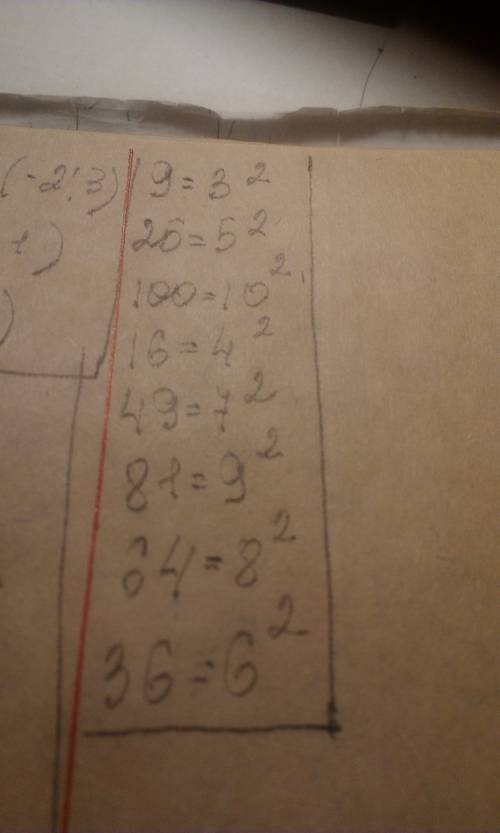 (-2; 3)
1)
)
9=3²
25=5²
100=10²
16=4²
49=7²
81=9²
64=8²
36=6²